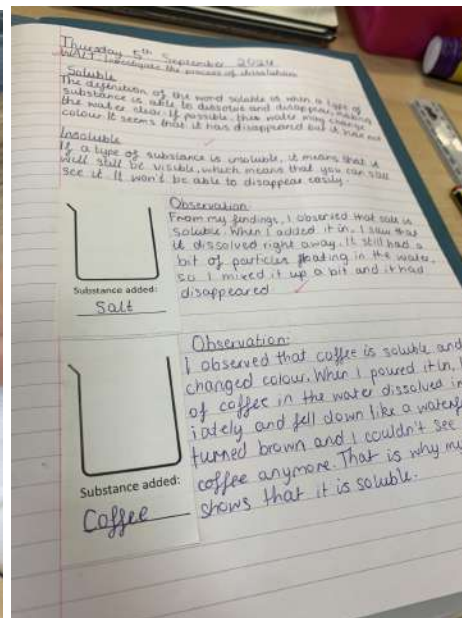 Thursday 5th September 2024
WALT: Investigate the process of dissolution
Soluble
The definition of the word soluble is when a type of
substance is able to dissolve and disappear, making
the water clear. If possible, the water may change
colour. It seems that it has disappeared but it has not
Insoluble
If a type of substance is insoluble, it means that it
will still be visible, which means that you can still
see it. It won't be able to disappear easily.
Observation:
From my findings, I observed that salt is
soluble. When I added it in, I saw that
it dissolved right away. It still had a
bit of particles floating in the water,
so I mixed it up a bit and it had
disappeared
Substance added:
Salt
Observation:
I observed that coffee is soluble and
changed colour. When I poured it in,
of coffee in the water dissolved
iately and fell down like a
turned brown and I couldn't see
coffee anymore. That is why my
shows that it is soluble.
Substance added:
Coffee